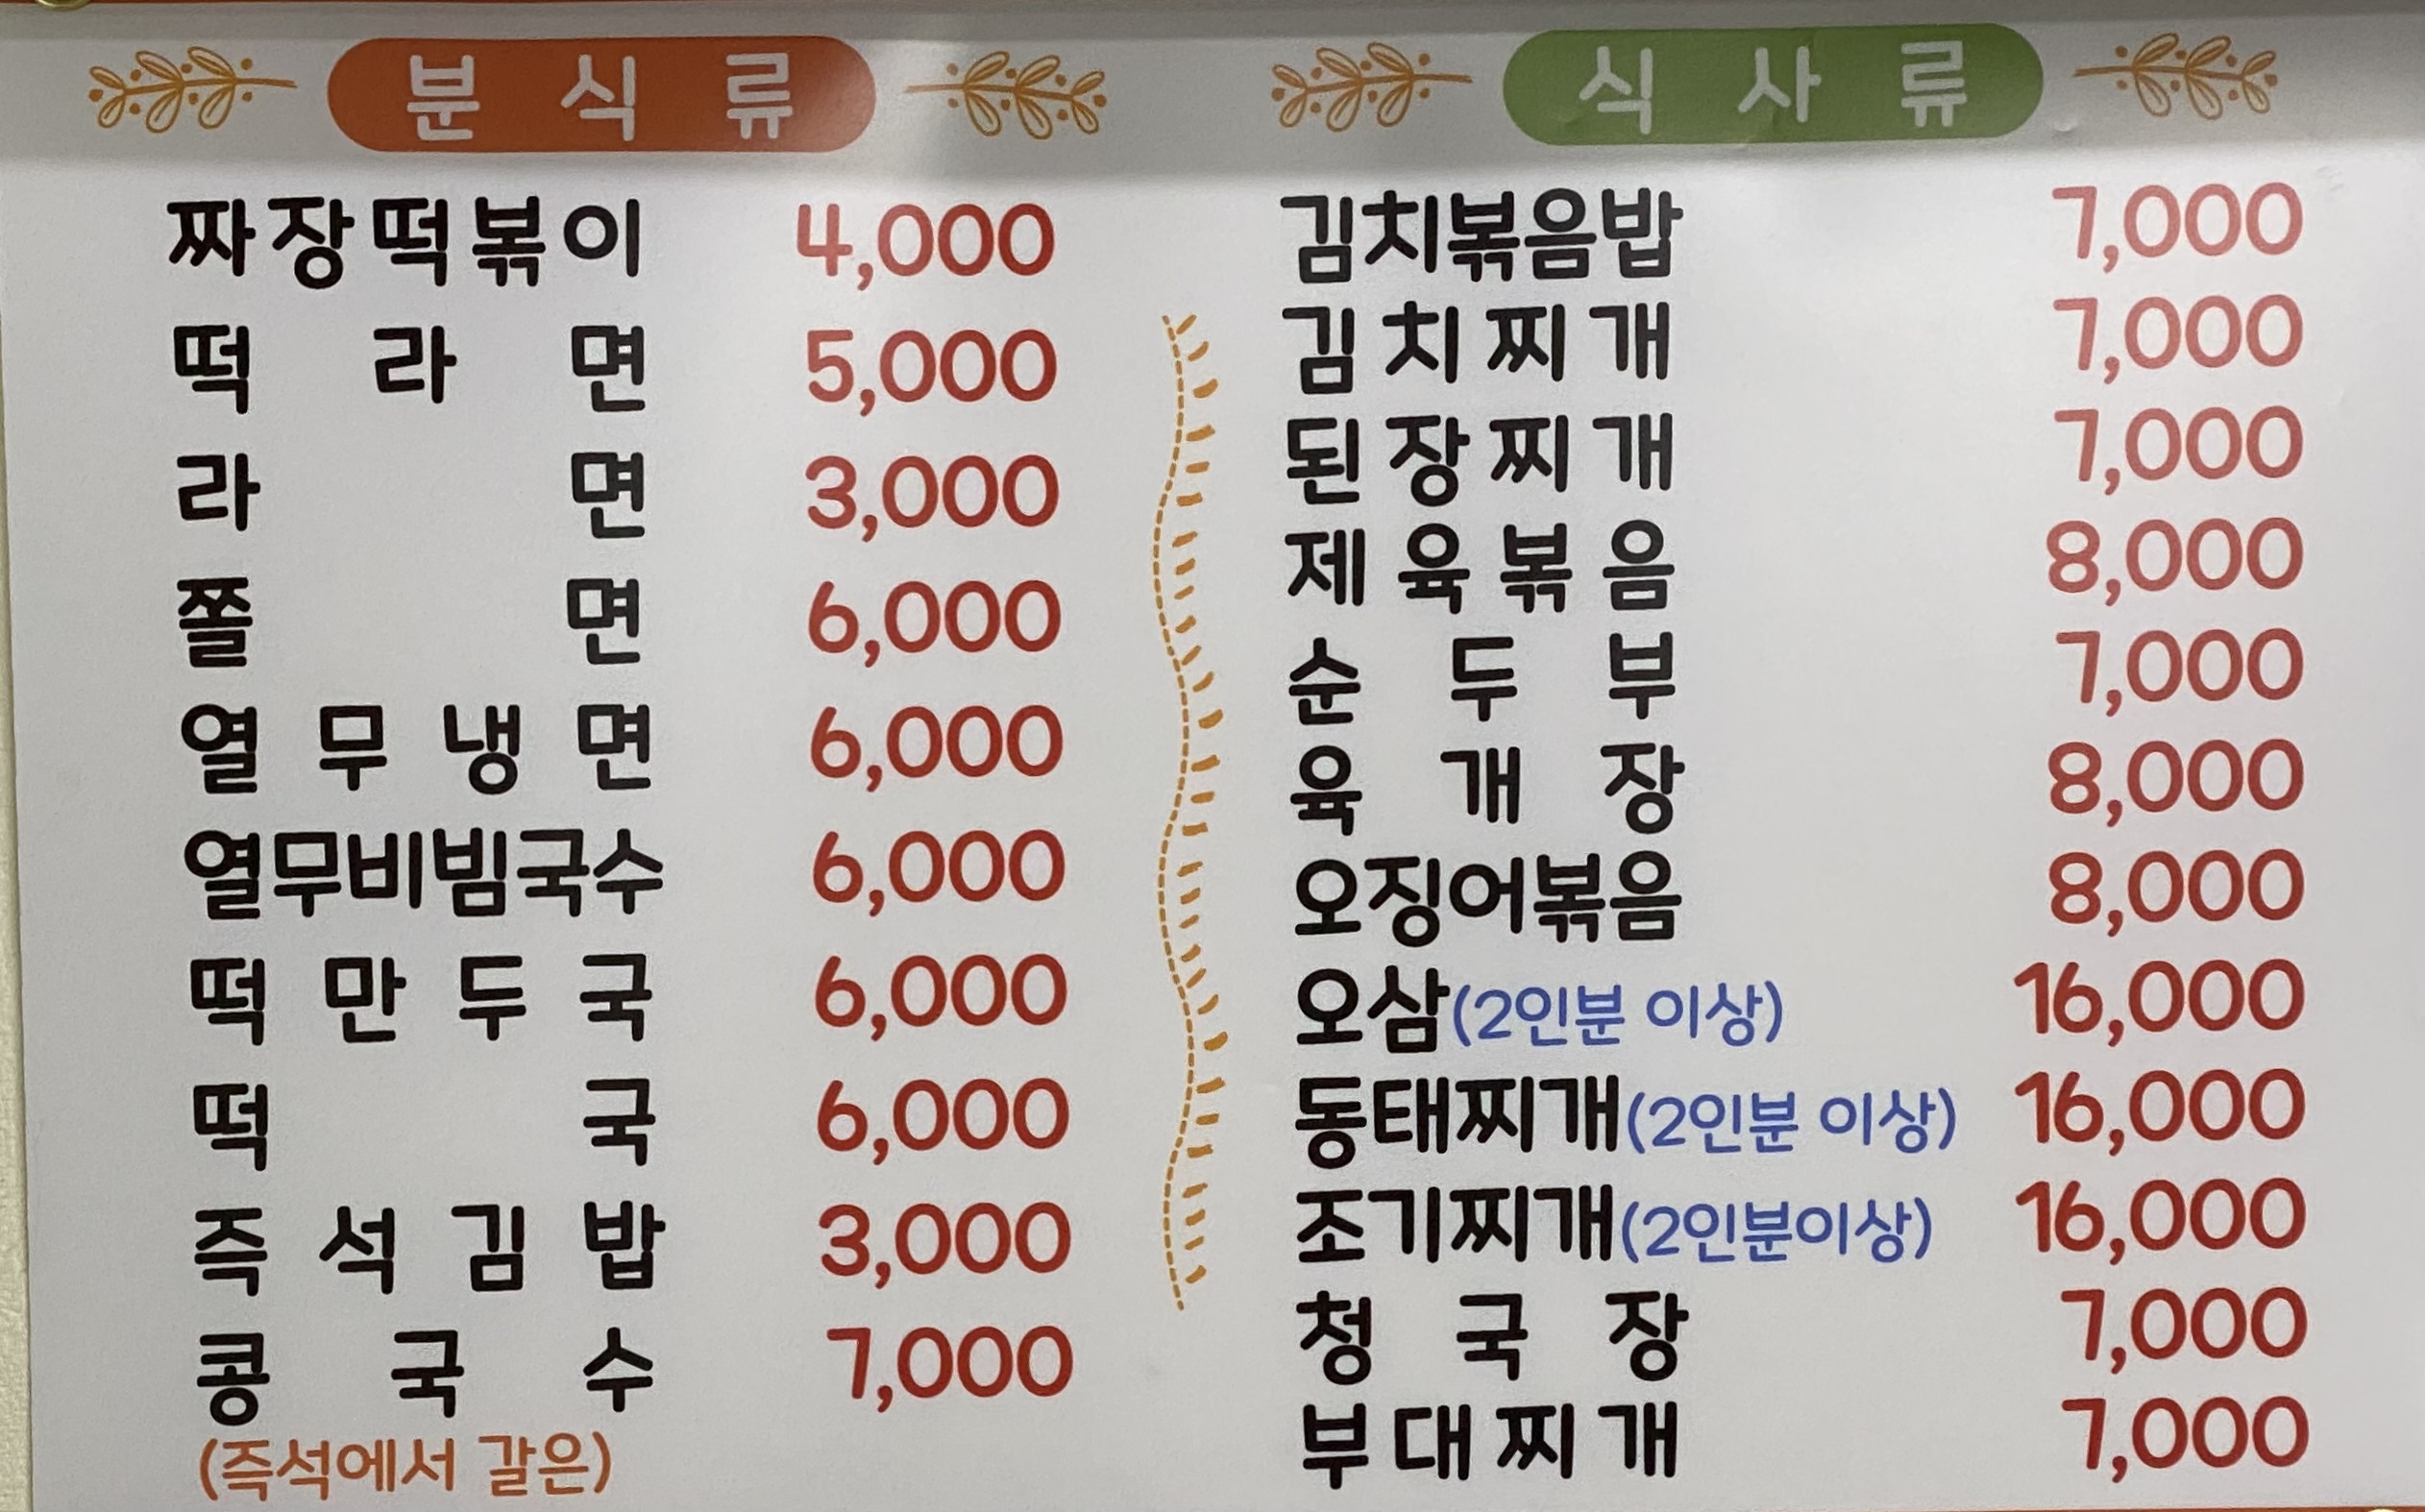 분식류
짜장떡볶이 4,000
떡라면 5,000
라면 3,000
쫄면 6,000
열무냉면 6,000
열무비빔국수 6,000
떡만두국 6,000
떡국 6,000
즉석김밥 3,000
콩국수 7,000
(즉석에서 갈은)
식사류
김치볶음밥 7,000
김치찌개 7,000
된장찌개 7,000
제육볶음 8,000
순두부 7,000
육개장 8,000
오징어볶음 8,000
오삼(2인분 이상) 16,000
동태찌개(2인분 이상) 16,000
조기찌개(2인분이상) 16,000
청국장 7,000
부대찌개 7,000